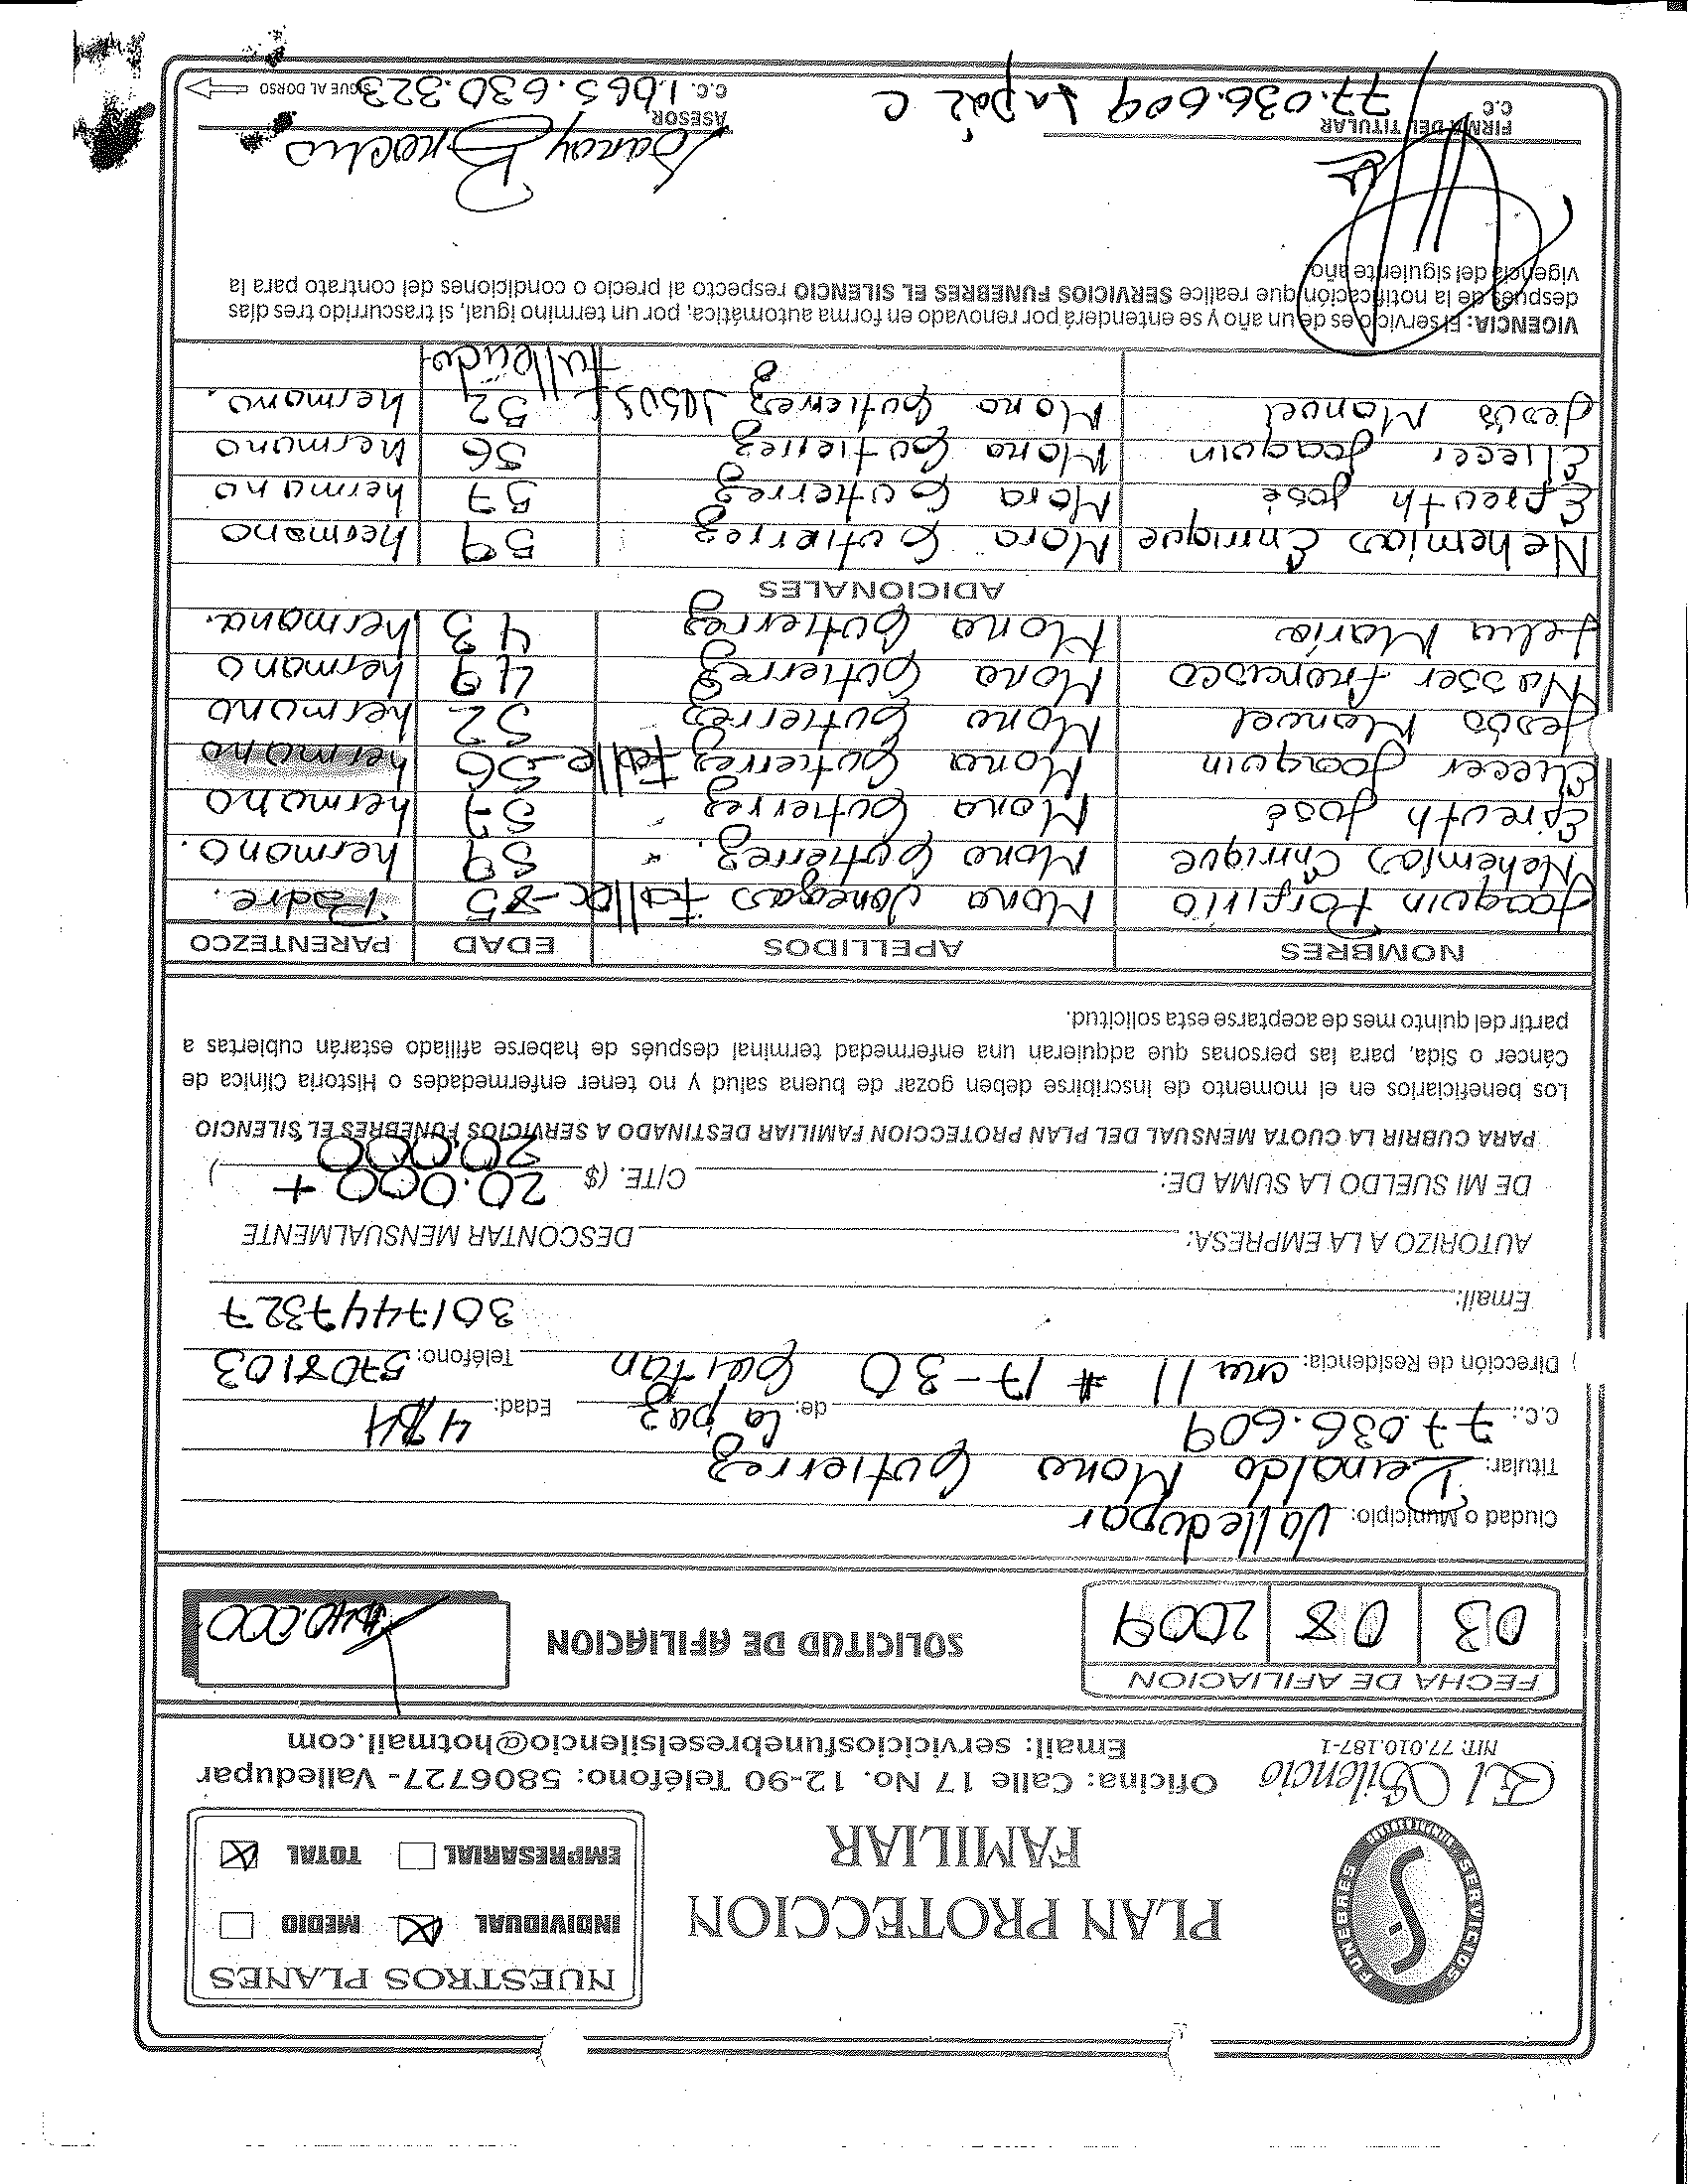 SERVICIOS FUNEBRES
El Silencio
NIT. 77.010.187-1
PLAN PROTECCION
FAMILIAR
NUESTROS PLANES
INDIVIDUAL X MEDIO
EMPRESARIAL TOTAL X
Oficina: Calle 17 No. 12-90 Teléfono: 5806727- Valledupar
Email: serviciosfunebreselsilencio@hotmail.com
FECHA DE AFILIACION
03 08 2009
SOLICITUD DE AFILIACION
$40.000
Ciudad o Municipio: Valledupar
Titular: Reinaldo Mora Gutierrez
C.C.: 77.036.609 de: la paz Edad:
Dirección de Residencia: cra 11 # 17-30 Gaitan Teléfono: 5708103
Email: 3017447327
AUTORIZO A LA EMPRESA: DESCONTAR MENSUALMENTE
DE MI SUELDO LA SUMA DE: C/TE. ($ 20.000 + )
20.000
PARA CUBRIR LA CUOTA MENSUAL DEL PLAN PROTECCION FAMILIAR DESTINADO A SERVICIOS FUNEBRES EL SILENCIO
Los beneficiarios en el momento de inscribirse deben gozar de buena salud y no tener enfermedades o Historia Clínica de
Cáncer o Sida, para las personas que adquieran una enfermedad terminal después de haberse afiliado estarán cubiertas a
partir del quinto mes de aceptarse esta solicitud.
NOMBRES APELLIDOS EDAD PARENTEZCO
Joaquin Porfirio Mora Vanegas Fallec- 85 Padre.
Nehemias Enrique Mora Gutierrez. 59 hermano.
Epreuth José Mora Gutierrez 57 hermano
Eliecer Joaquin Mora Gutierrez Falle- 56 hermano
Jesús Manuel Mora Gutierrez 52 hermano
Nasser Francisco Mora Gutierrez 49 hermano
Lelia María Mora Gutierrez 43 hermana.
ADICIONALES
Nehemias Enrique Mora Gutierrez 59 hermano
Epreuth José Mora Gutierrez 57 hermano
Eliecer Joaquin Mora Gutierrez 56 hermano
Jesús Manuel Mora Gutierrez Jesus 52 hermano.
VIGENCIA: El servicio es de un año y se entenderá por renovado en forma automática, por un termino igual, si trascurrido tres días
después de la notificación que realice SERVICIOS FUNEBRES EL SILENCIO respecto al precio o condiciones del contrato para la
vigencia del siguiente año.
FIRMA DEL TITULAR
C.C. 77.036.609 La paz C
ASESOR
C.C. 1.065.630.323
SIGUE AL DORSO